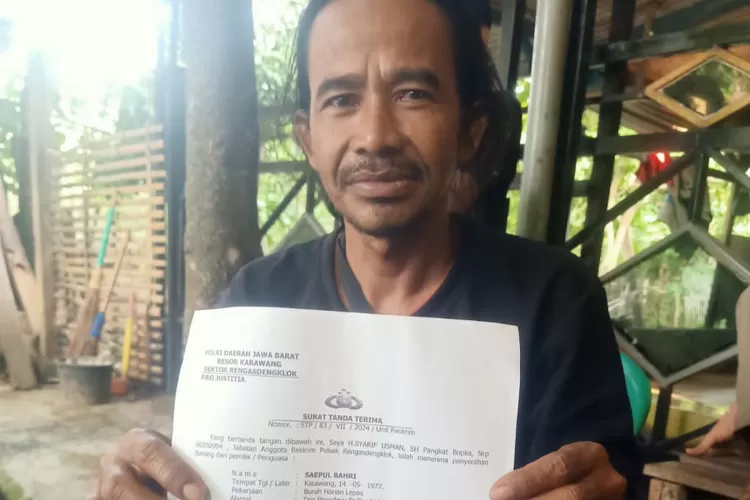 POLRI DAERAH JAWA BARAT
RESOR KARAWANG
SEKTOR RENGASDENGKLOK
PRO JUSTITIA
SURAT TANDA TERIMA
Nomor. : STP / 83 / VII / 2024 / Unit Reskrim
Yang bertanda tangan dibawah ini, Saya H.SYARIF USMAN, SH Pangkat Bripka, Nrp
86050994 , Jabatan Anggota Reskrim Polsek Rengasdengklok, telah menerima penyerahan
Barang dari pemilik / Penguasa :
N a m a : SAEPUL BAHRI
Tempat Tgl / Lahir : Karawang, 14 -05- 1977,
Pekerjaan : Buruh Harian Lepas
Alamat